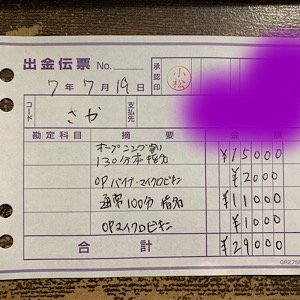 出金伝票 No.
承認印 小松
7年 7月 19日
コード さか 支払先
勘定科目 摘要 金額
オープニング割
130分本指名 ¥15000
OPバイブ・マイクロビキニ ¥2000
通常100分 指名 ¥11000
OPマイクロビキニ ¥1000
合計 ¥29000